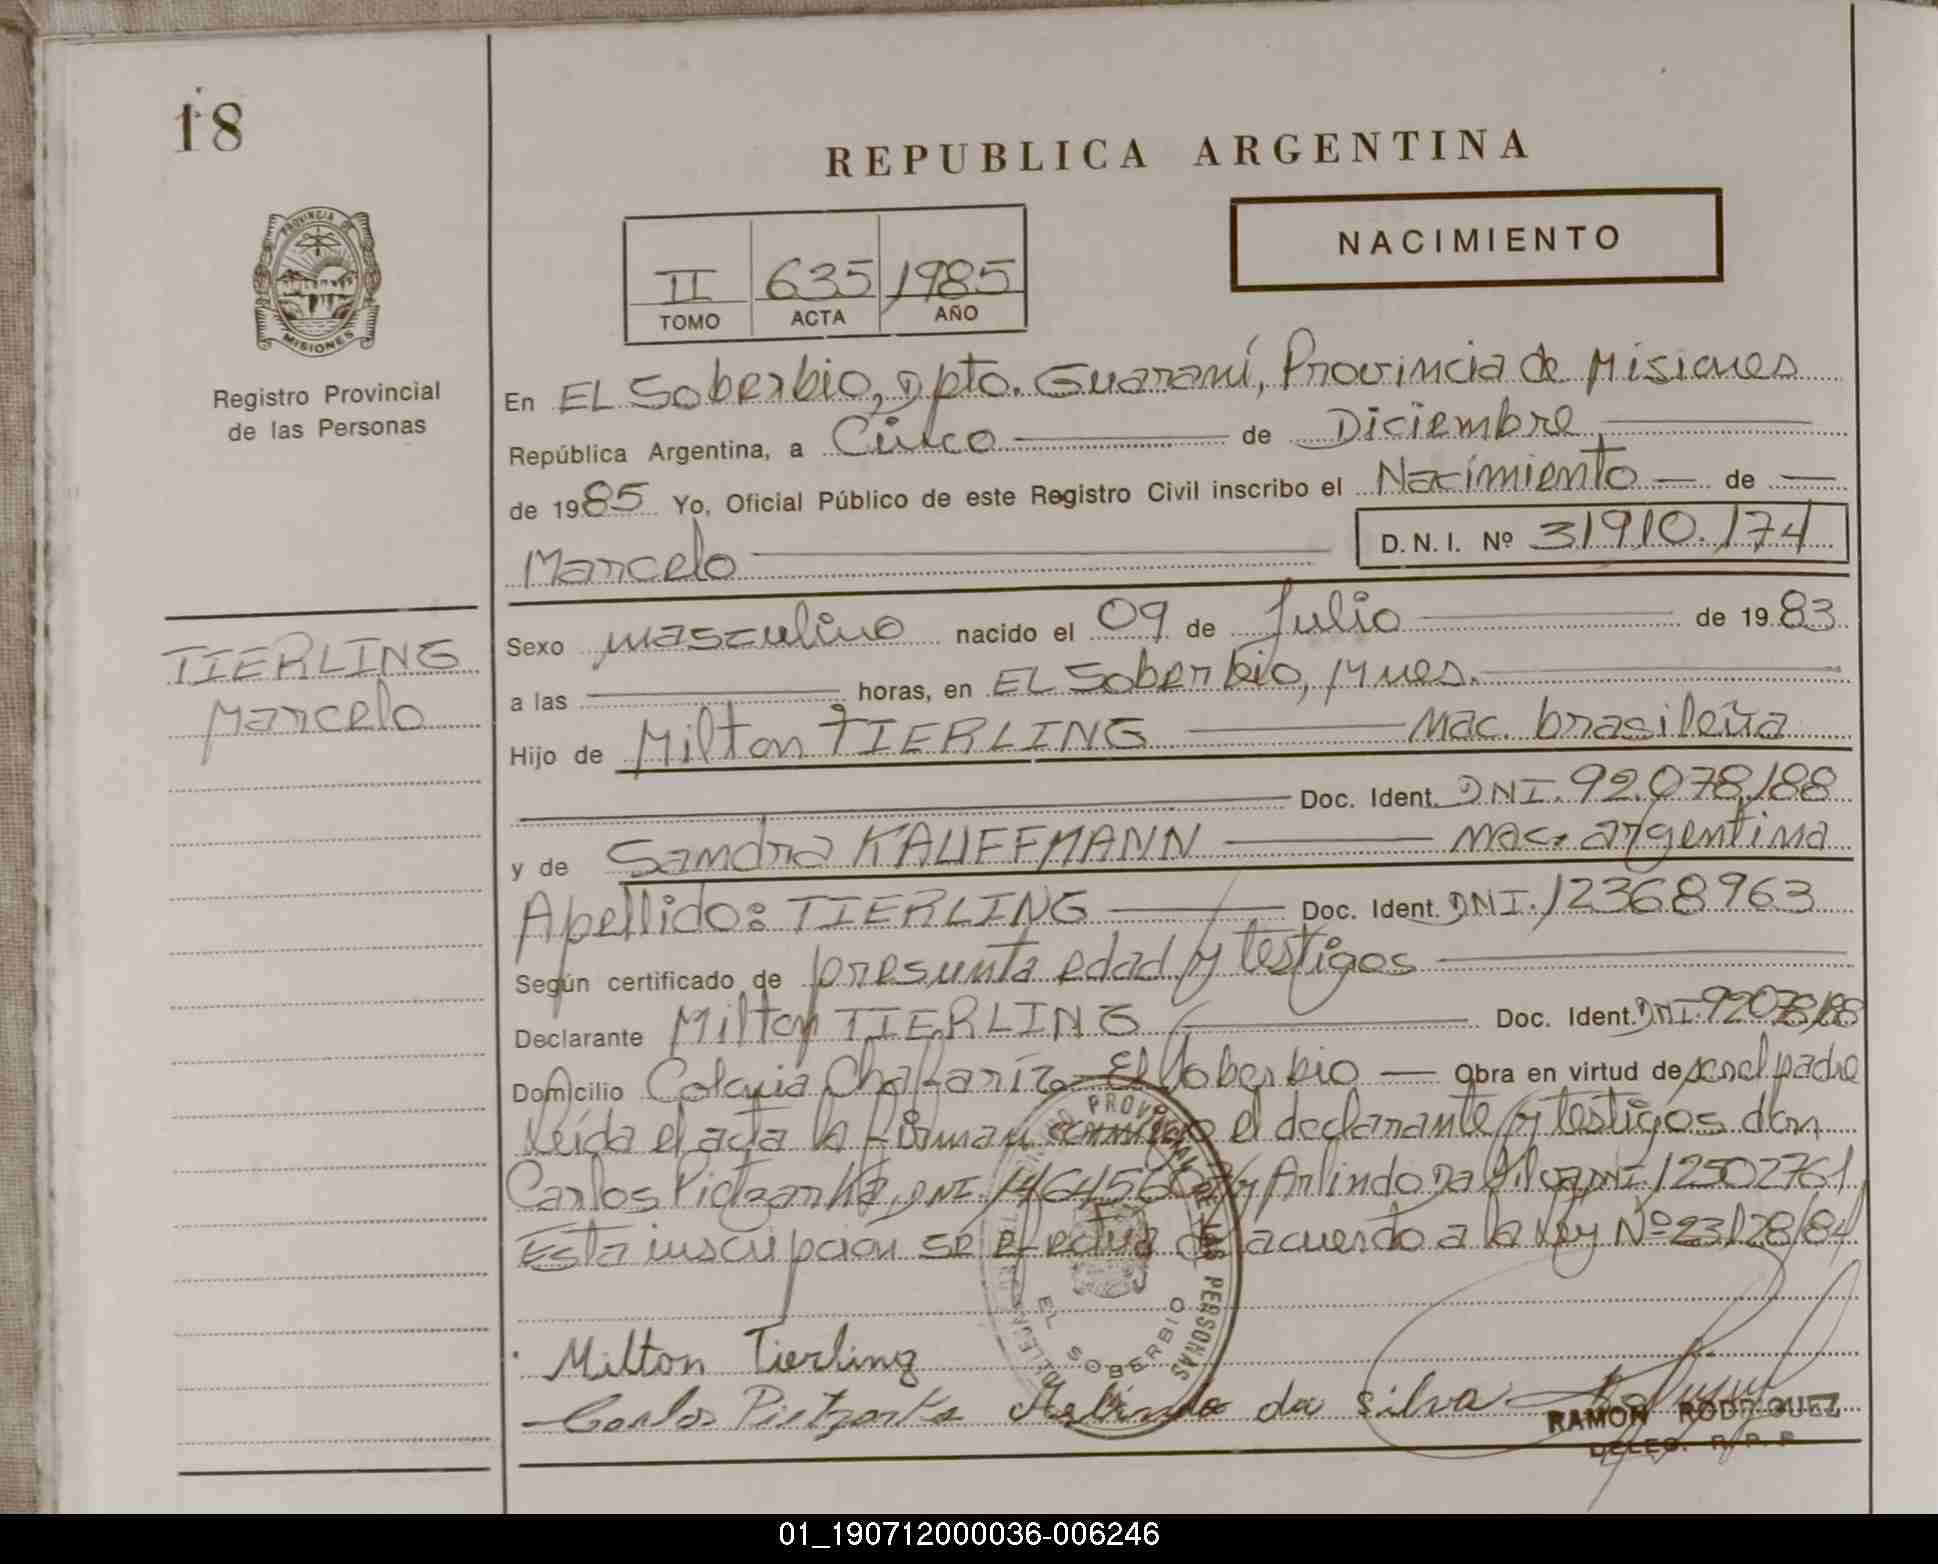 18
REPUBLICA ARGENTINA
NACIMIENTO
II 635 1985
TOMO ACTA AÑO
PROVINCIA DE
MISIONES
Registro Provincial
de las Personas
En EL Soberbio, Dpto. Guaraní, Provincia de Misiones
República Argentina, a Cinco de Diciembre
de 1985 Yo, Oficial Público de este Registro Civil inscribo el Nacimiento de
Marcelo D.N.I. Nº 31910.174
TIERLING
Marcelo
Sexo masculino nacido el 09 de Julio de 1983
a las horas, en EL Soberbio, Mnes.
Hijo de Milton TIERLING nac. brasileña
Doc. Ident. DNI. 92.078.188
y de Sandra KAUFFMANN nac. argentina
Apellido: TIERLING Doc. Ident. DNI. 12368963
Según certificado de presunta edad y testigos
Declarante Milton TIERLING Doc. Ident. DNI. 92078188
Domicilio Colonia Chafariz El Soberbio Obra en virtud de ser el padre
Leída el acta la firman conmigo el declarante y testigos don
Carlos Pietzarka, DNI 14645607 y Arlindo Da Silva DNI. 12502761
Esta inscripcion se efectua de acuerdo a la Ley Nº 23128/84
EL SOBERBIO
Milton Tierling
Carlos Pietzarka Arlindo da Silva
RAMON RODRIGUEZ
DELEG. R. P. P.
01_190712000036-006246